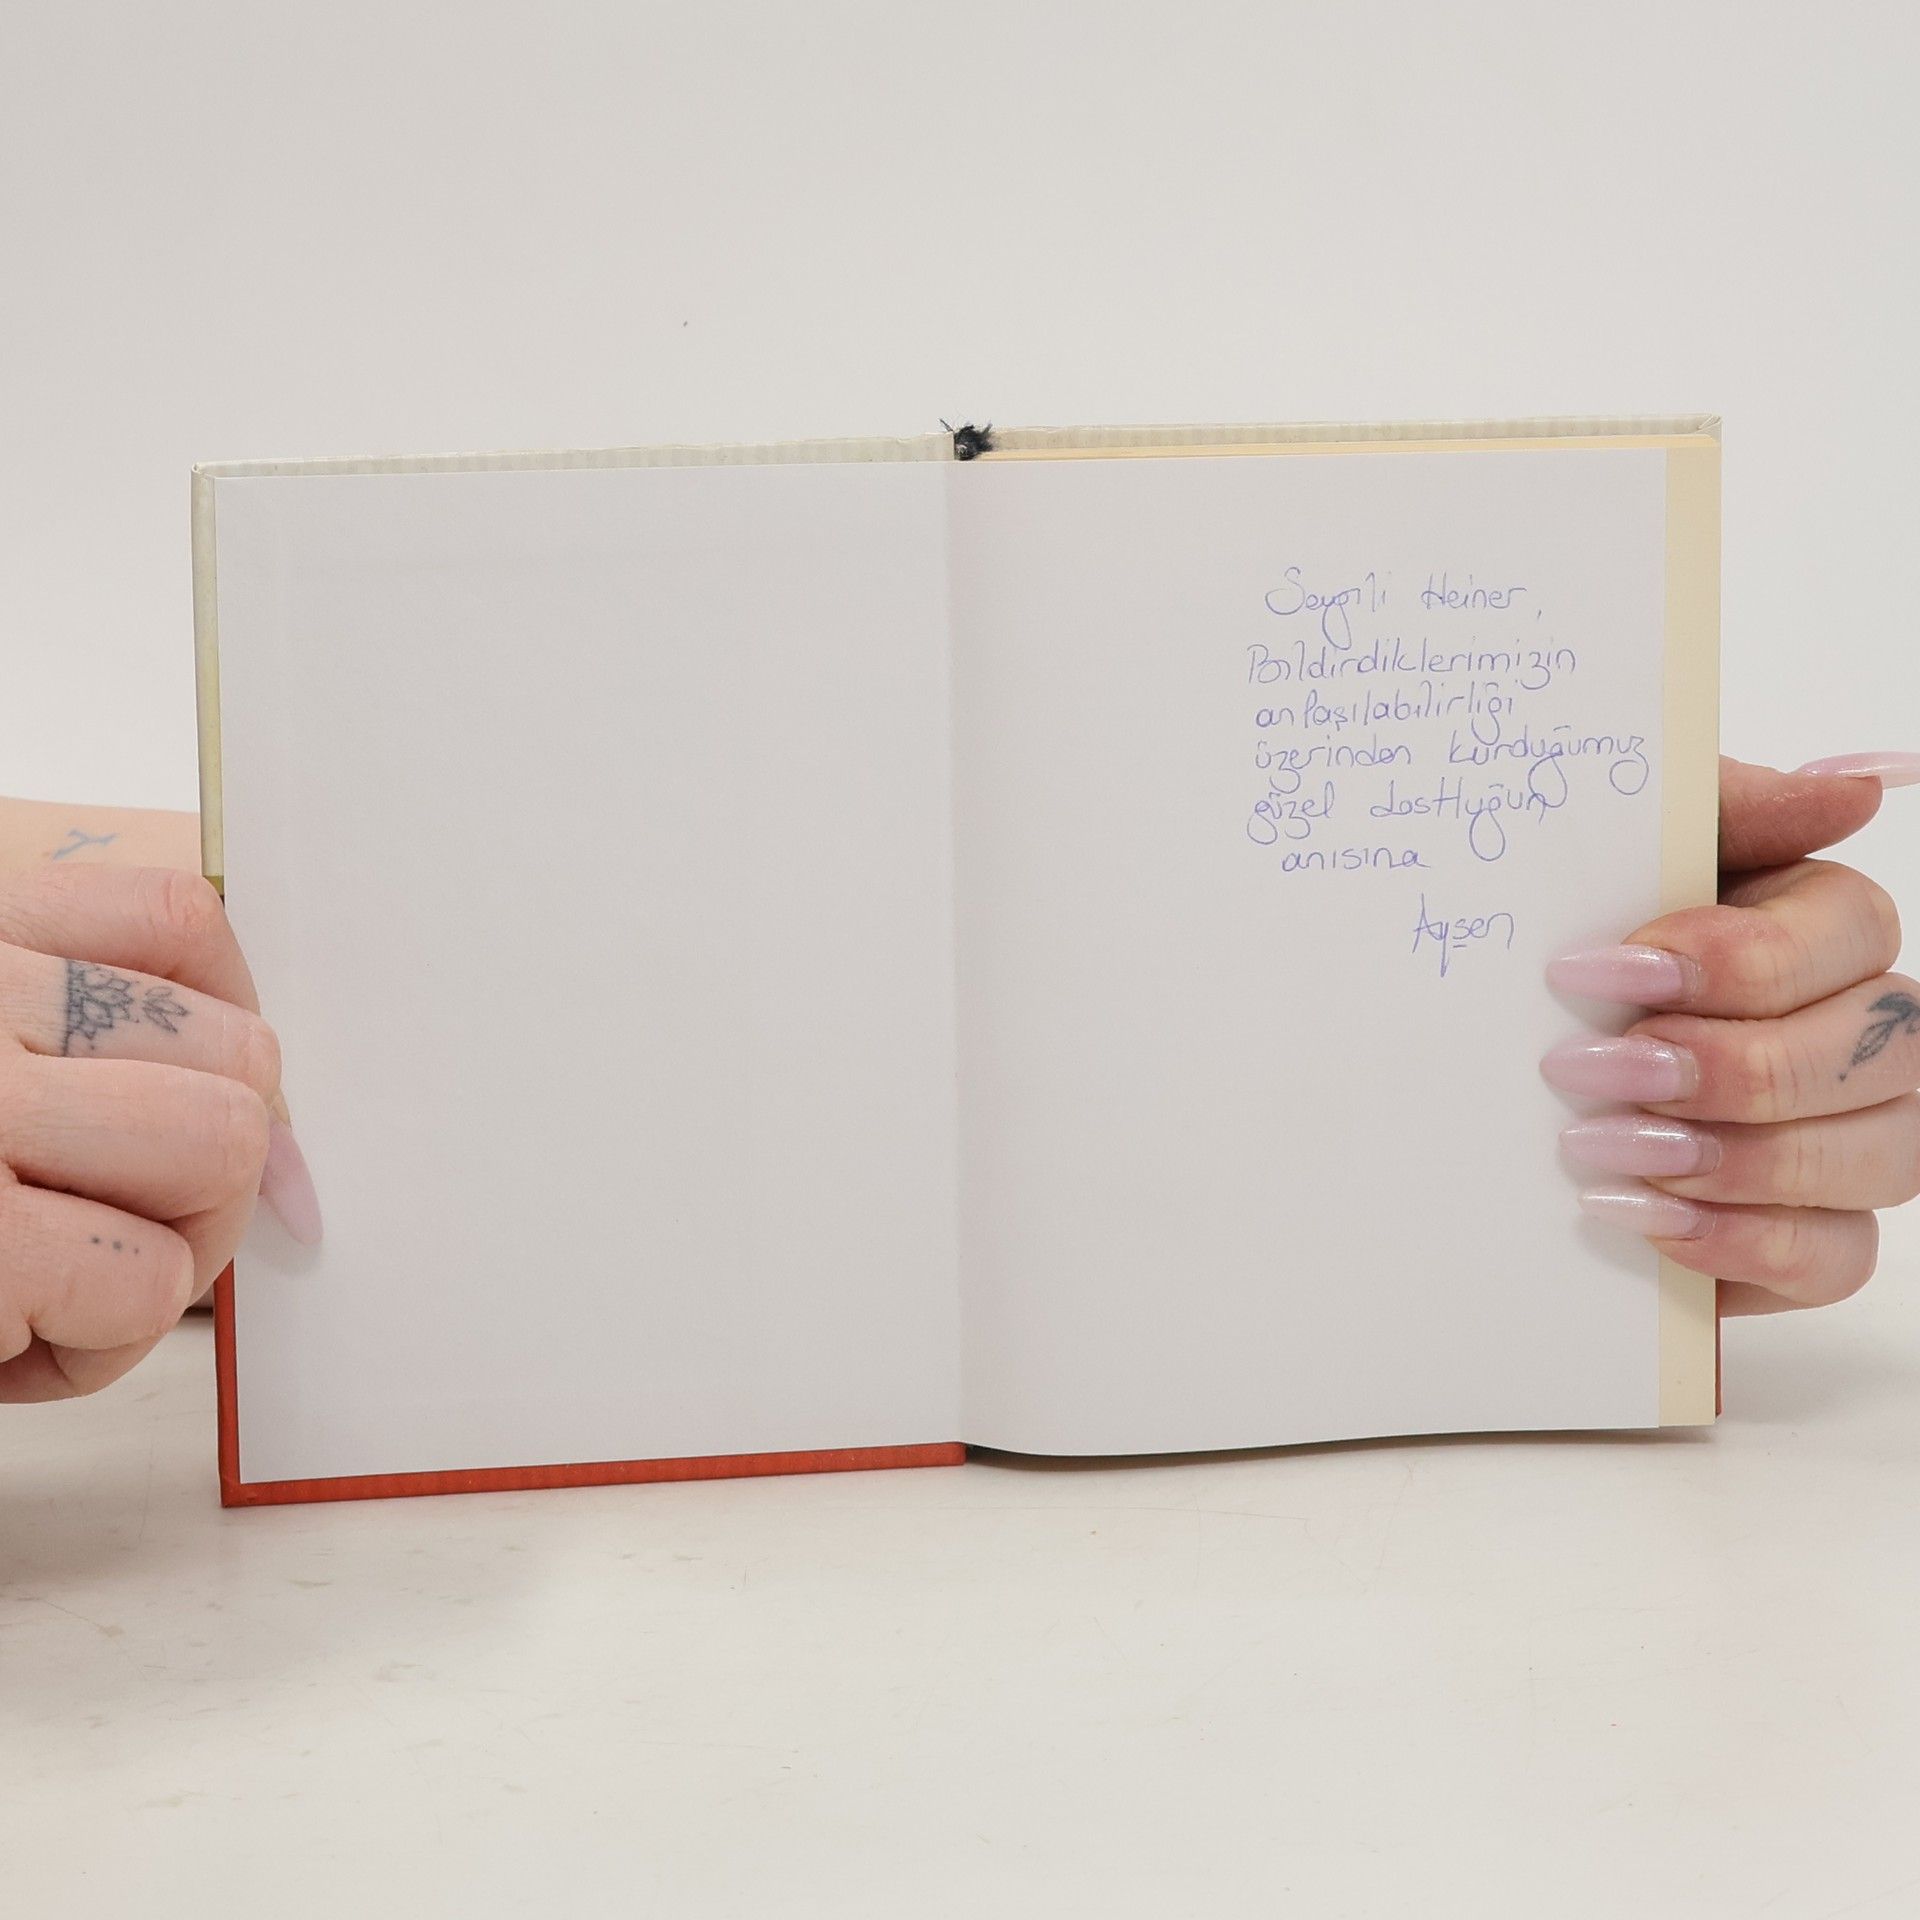 Sevgili Heiner,
Bildirdiklerimizin
anlaşılabilirliği
üzerinden kurduğumuz
güzel dostluğun
anısına
Ayşen